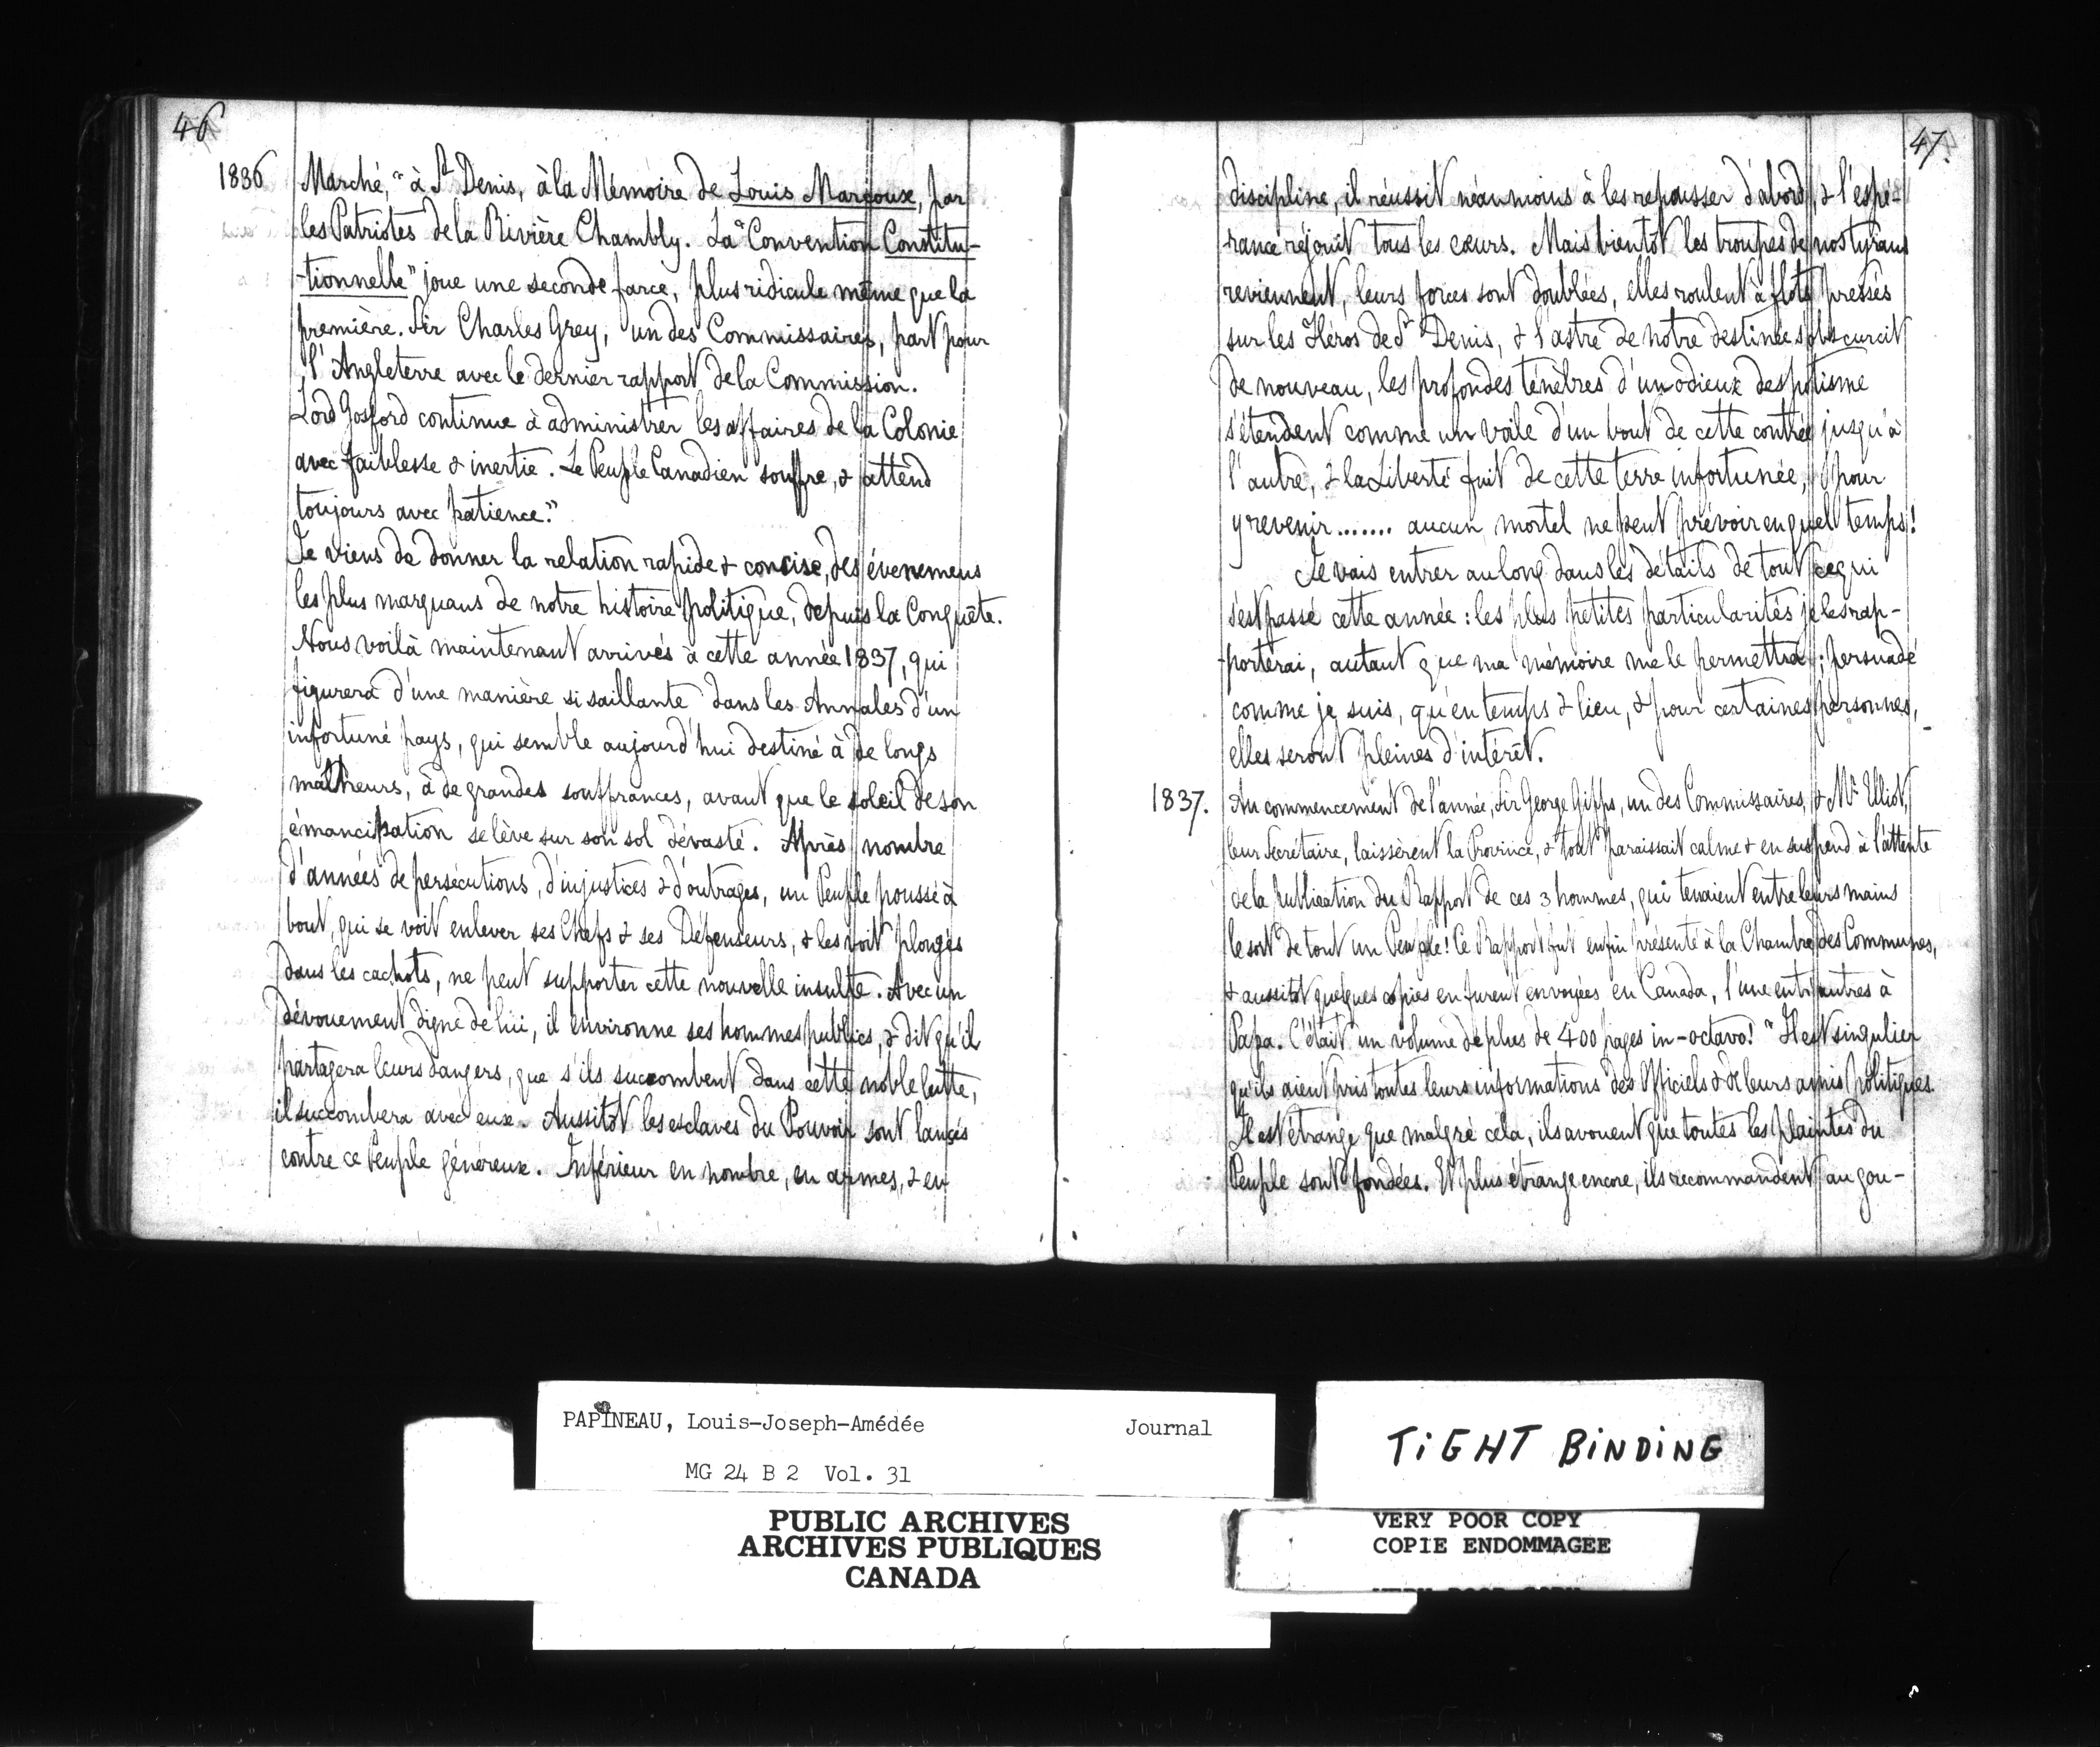 46
1836 Marché," à St Denis, à la Mémoire de Louis Marcoux, par
les Patriotes de la Rivière Chambly. La "Convention Constitu-
-tionnelle" joue une seconde farce, plus ridicule même que la
première. Sir Charles Grey, un des Commissaires, part pour
l'Angleterre avec le dernier rapport de la Commission.
Lord Gosford continue à administrer les affaires de la Colonie
avec faiblesse & inertie. Le Peuple Canadien souffre, & attend
toujours avec patience."
Je viens de donner la relation rapide & concise, des évenemens
les plus marquans de notre histoire politique, depuis la Conquête.
Nous voilà maintenant arrivés à cette année 1837, qui
figurera d'une manière si saillante dans les Annales d'un
infortuné pays, qui semble aujourd'hui destiné à de longs
malheurs, à de grandes souffrances, avant que le soleil de son
émancipation se lève sur son sol dévasté. Après nombre
d'années de persécutions, d'injustices & d'outrages, un Peuple poussé à
bout, qui se voit enlever ses Chefs & ses Défenseurs, & les voit plongés
dans les cachots, ne peut supporter cette nouvelle insulte. Avec un
dévouement digne de lui, il environne ses hommes publics, & dit qu'il
partagera leurs dangers, que s'ils succombent dans cette noble lutte,
il succombera avec eux. Aussitôt les esclaves du Pouvoir sont lancés
contre ce Peuple généreux. Inférieur en nombre, en armes, & en
47.
discipline, il réussit néanmoins à les repousser d'abord, & l'espé-
-rance réjouit tous les cœurs. Mais bientôt les troupes de nos tyrans
reviennent, leurs forces sont doublées, elles roulent à flots pressés
sur les Héros de St Denis, & l'astre de notre destinée s'obscurcit
de nouveau, les profondes ténèbres d'un odieux despotisme
s'étendent comme un voile d'un bout de cette contrée jusqu'à
l'autre, & la Liberté fuit de cette terre infortunée, pour
y revenir....... aucun mortel ne peut prévoir en quel temps!
Je vais entrer au long dans les détails de tout ce qui
s'est passé cette année : les plus petites particularités je les rap-
-porterai, autant que ma mémoire me le permettra ; persuadé
comme je suis, qu'en temps & lieu, & pour certaines personnes,
elles seront pleines d'intérêt.
1837. Au commencement de l'année, Sir George Gipps, un des Commissaires, & Mr Elliot,
leur Secrétaire, laissèrent la Province, & tout paraissait calme & en suspend à l'attente
de la publication du Rapport de ces 3 hommes, qui tenaient entre leurs mains
le sort de tout un Peuple! Ce Rapport fut enfin présenté à la Chambre des Communes,
& aussitôt quelques copies en furent envoyées en Canada, l'une entr'autres à
Papa. C'était un volume de plus de 400 pages in-octavo! "Il est singulier
qu'ils aient pris toutes leurs informations des Officiels & de leurs amis politiques.
Il est étrange que malgré cela, ils avouent que toutes les plaintes du
Peuple sont fondées. Et plus étrange encore, ils recommandent au gou-
PAPINEAU, Louis-Joseph-Amédée Journal
MG 24 B 2 Vol. 31
PUBLIC ARCHIVES
ARCHIVES PUBLIQUES
CANADA
TIGHT BINDING
VERY POOR COPY
COPIE ENDOMMAGEE